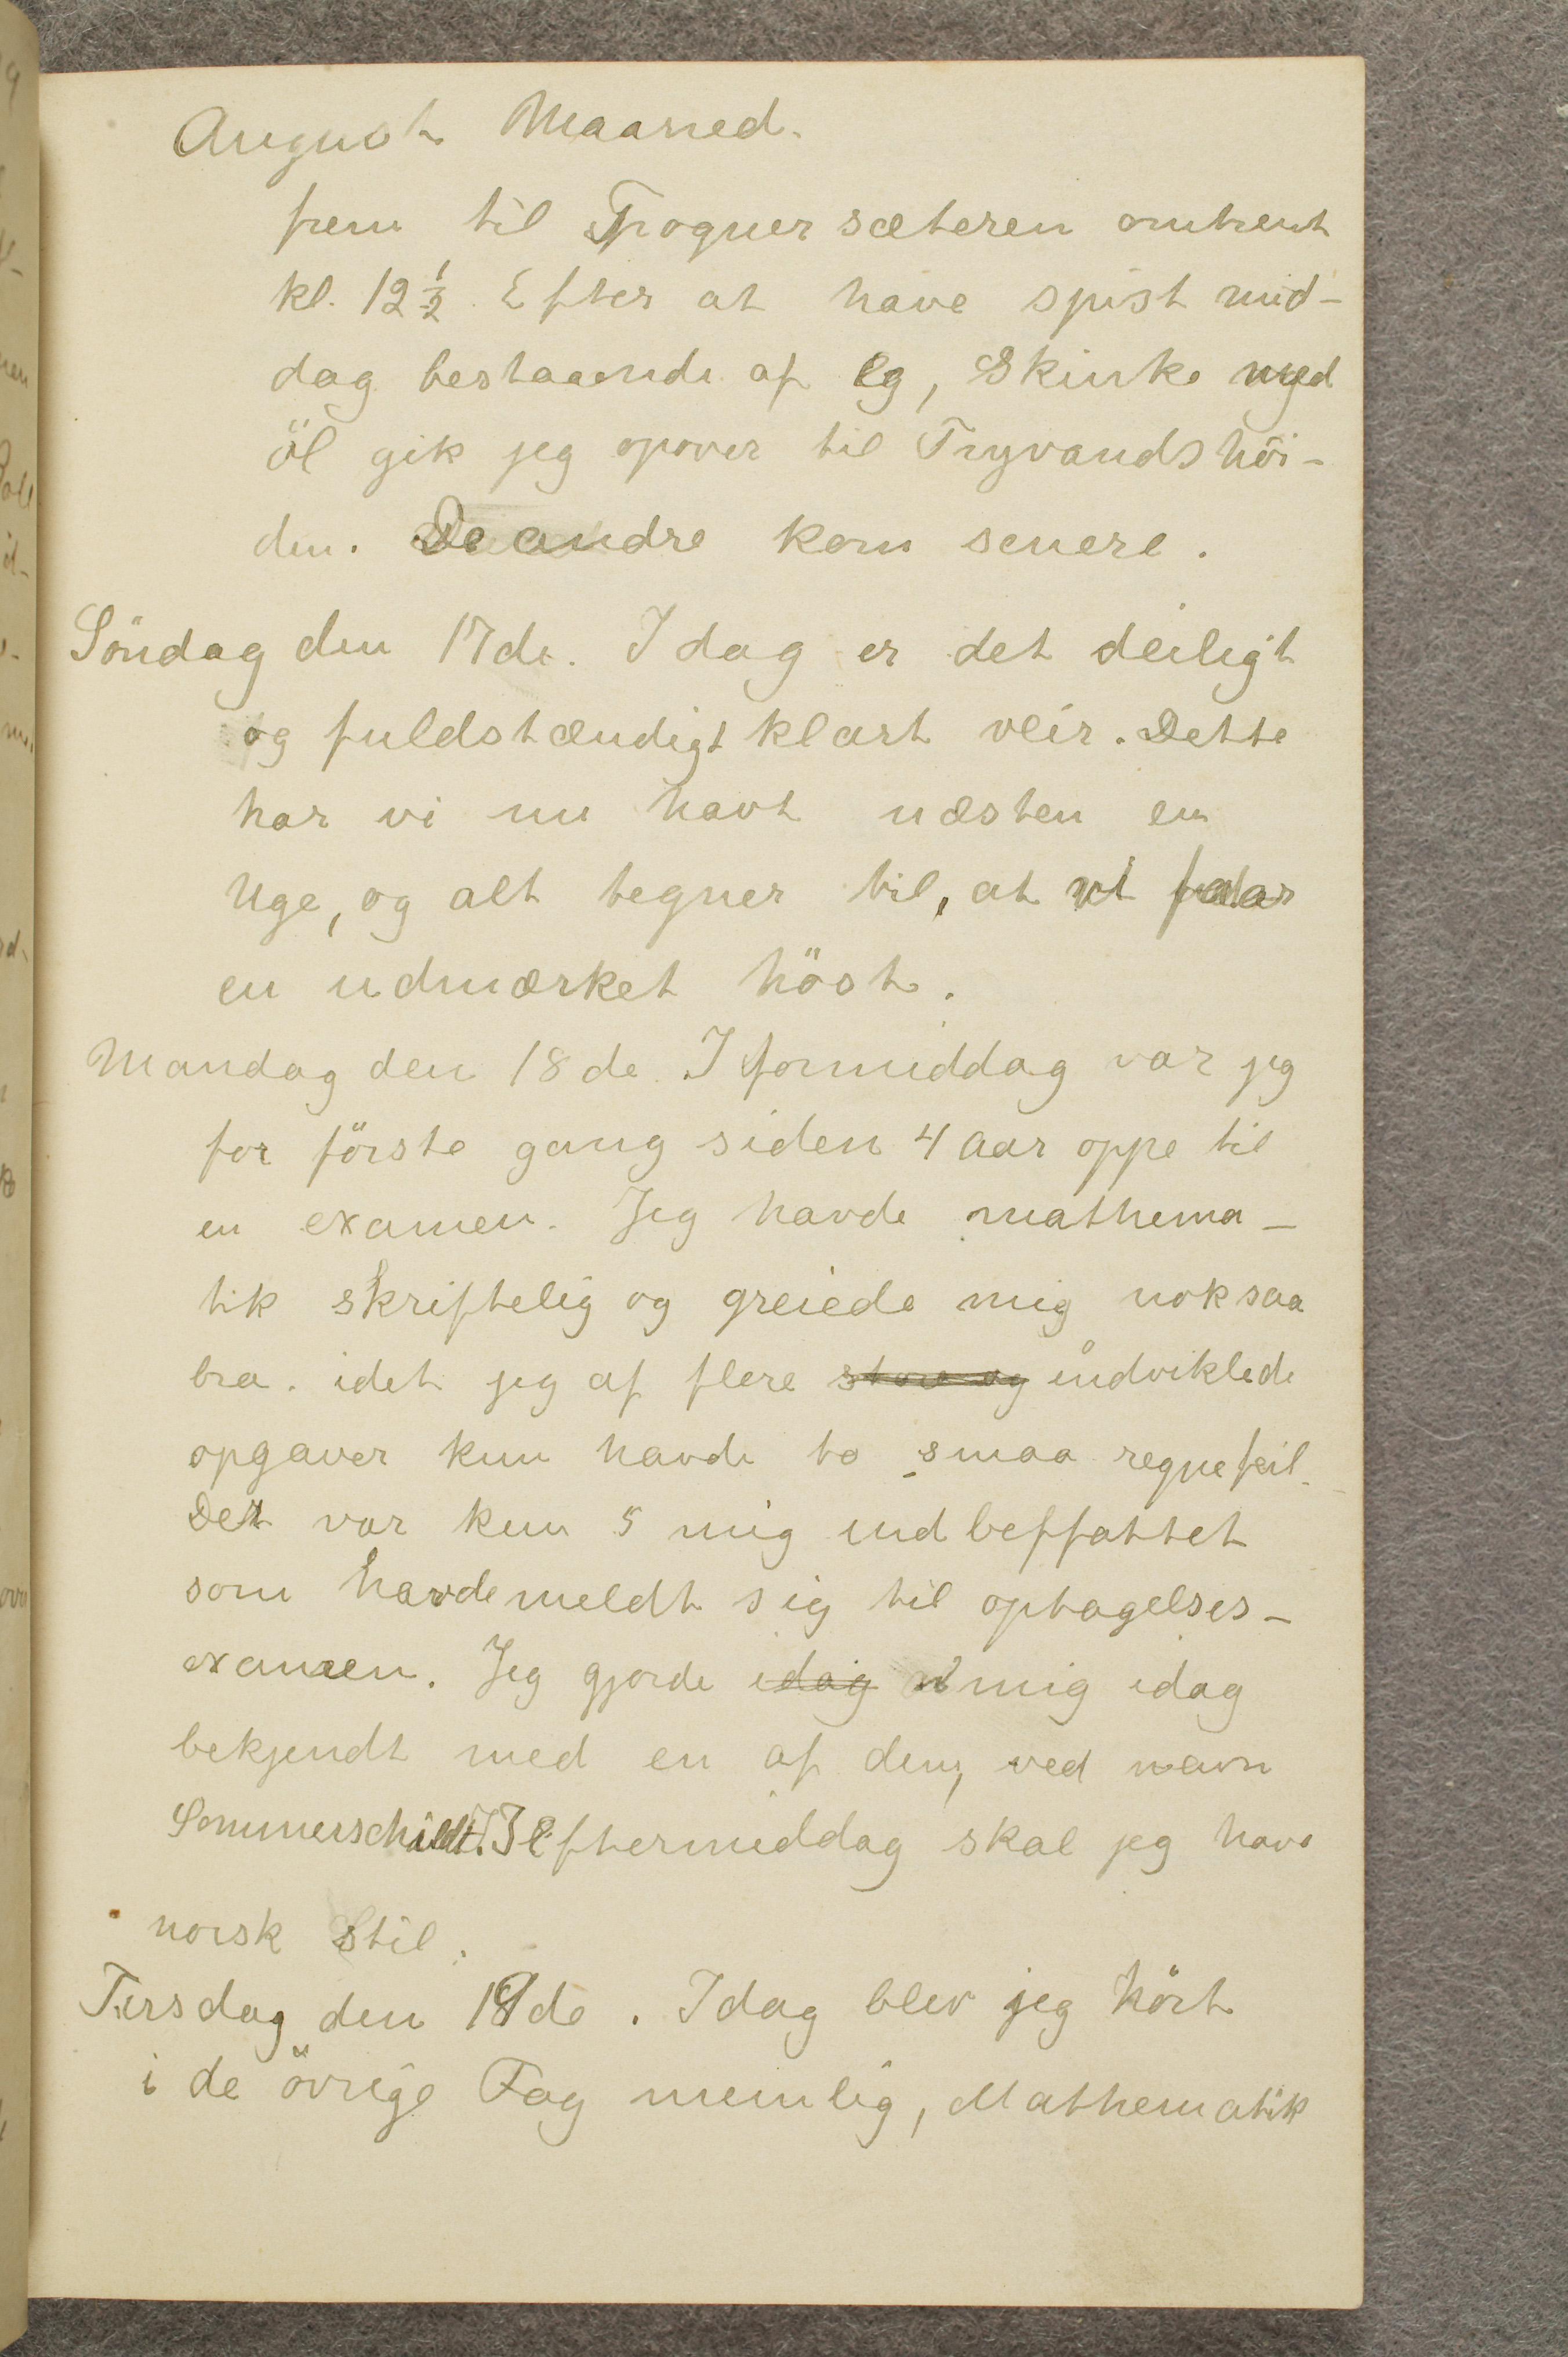 August Maaned.
frem til Frognersæteren omtrent
kl. 12½ Efter at have spist mid-
dag bestaaende af Eg, Skinke med
öl gik jeg opover til Tryvandshöi-
den. De andre kom senere.
Söndag den 17de. Idag er det deiligt
og fuldstændigt klart veir. Dette
har vi nu havt næsten en
Uge, og alt tegner til, at vi faar
en udmærket höst.
Mandag den 18de I formiddag var jeg
for förste gang siden 4 aar oppe til
en examen. Jeg havde mathema-
tik skriftelig og greiede mig noksaa
bra. idet jeg af flere store og indviklede
opgaver kun havde to smaa regnefeil.
Det var kun 5 mig indbeffattet
som havde meldt sig til optagelses-
examen. Jeg gjorde idag mig idag
bekjendt med en af dem, ved navn
Sommerschildt. I Eftermiddag skal jeg have
norsk Stil.
Tirsdag den 19de. Idag blev jeg hört
i de övrige Fag nemlig, Mathematik